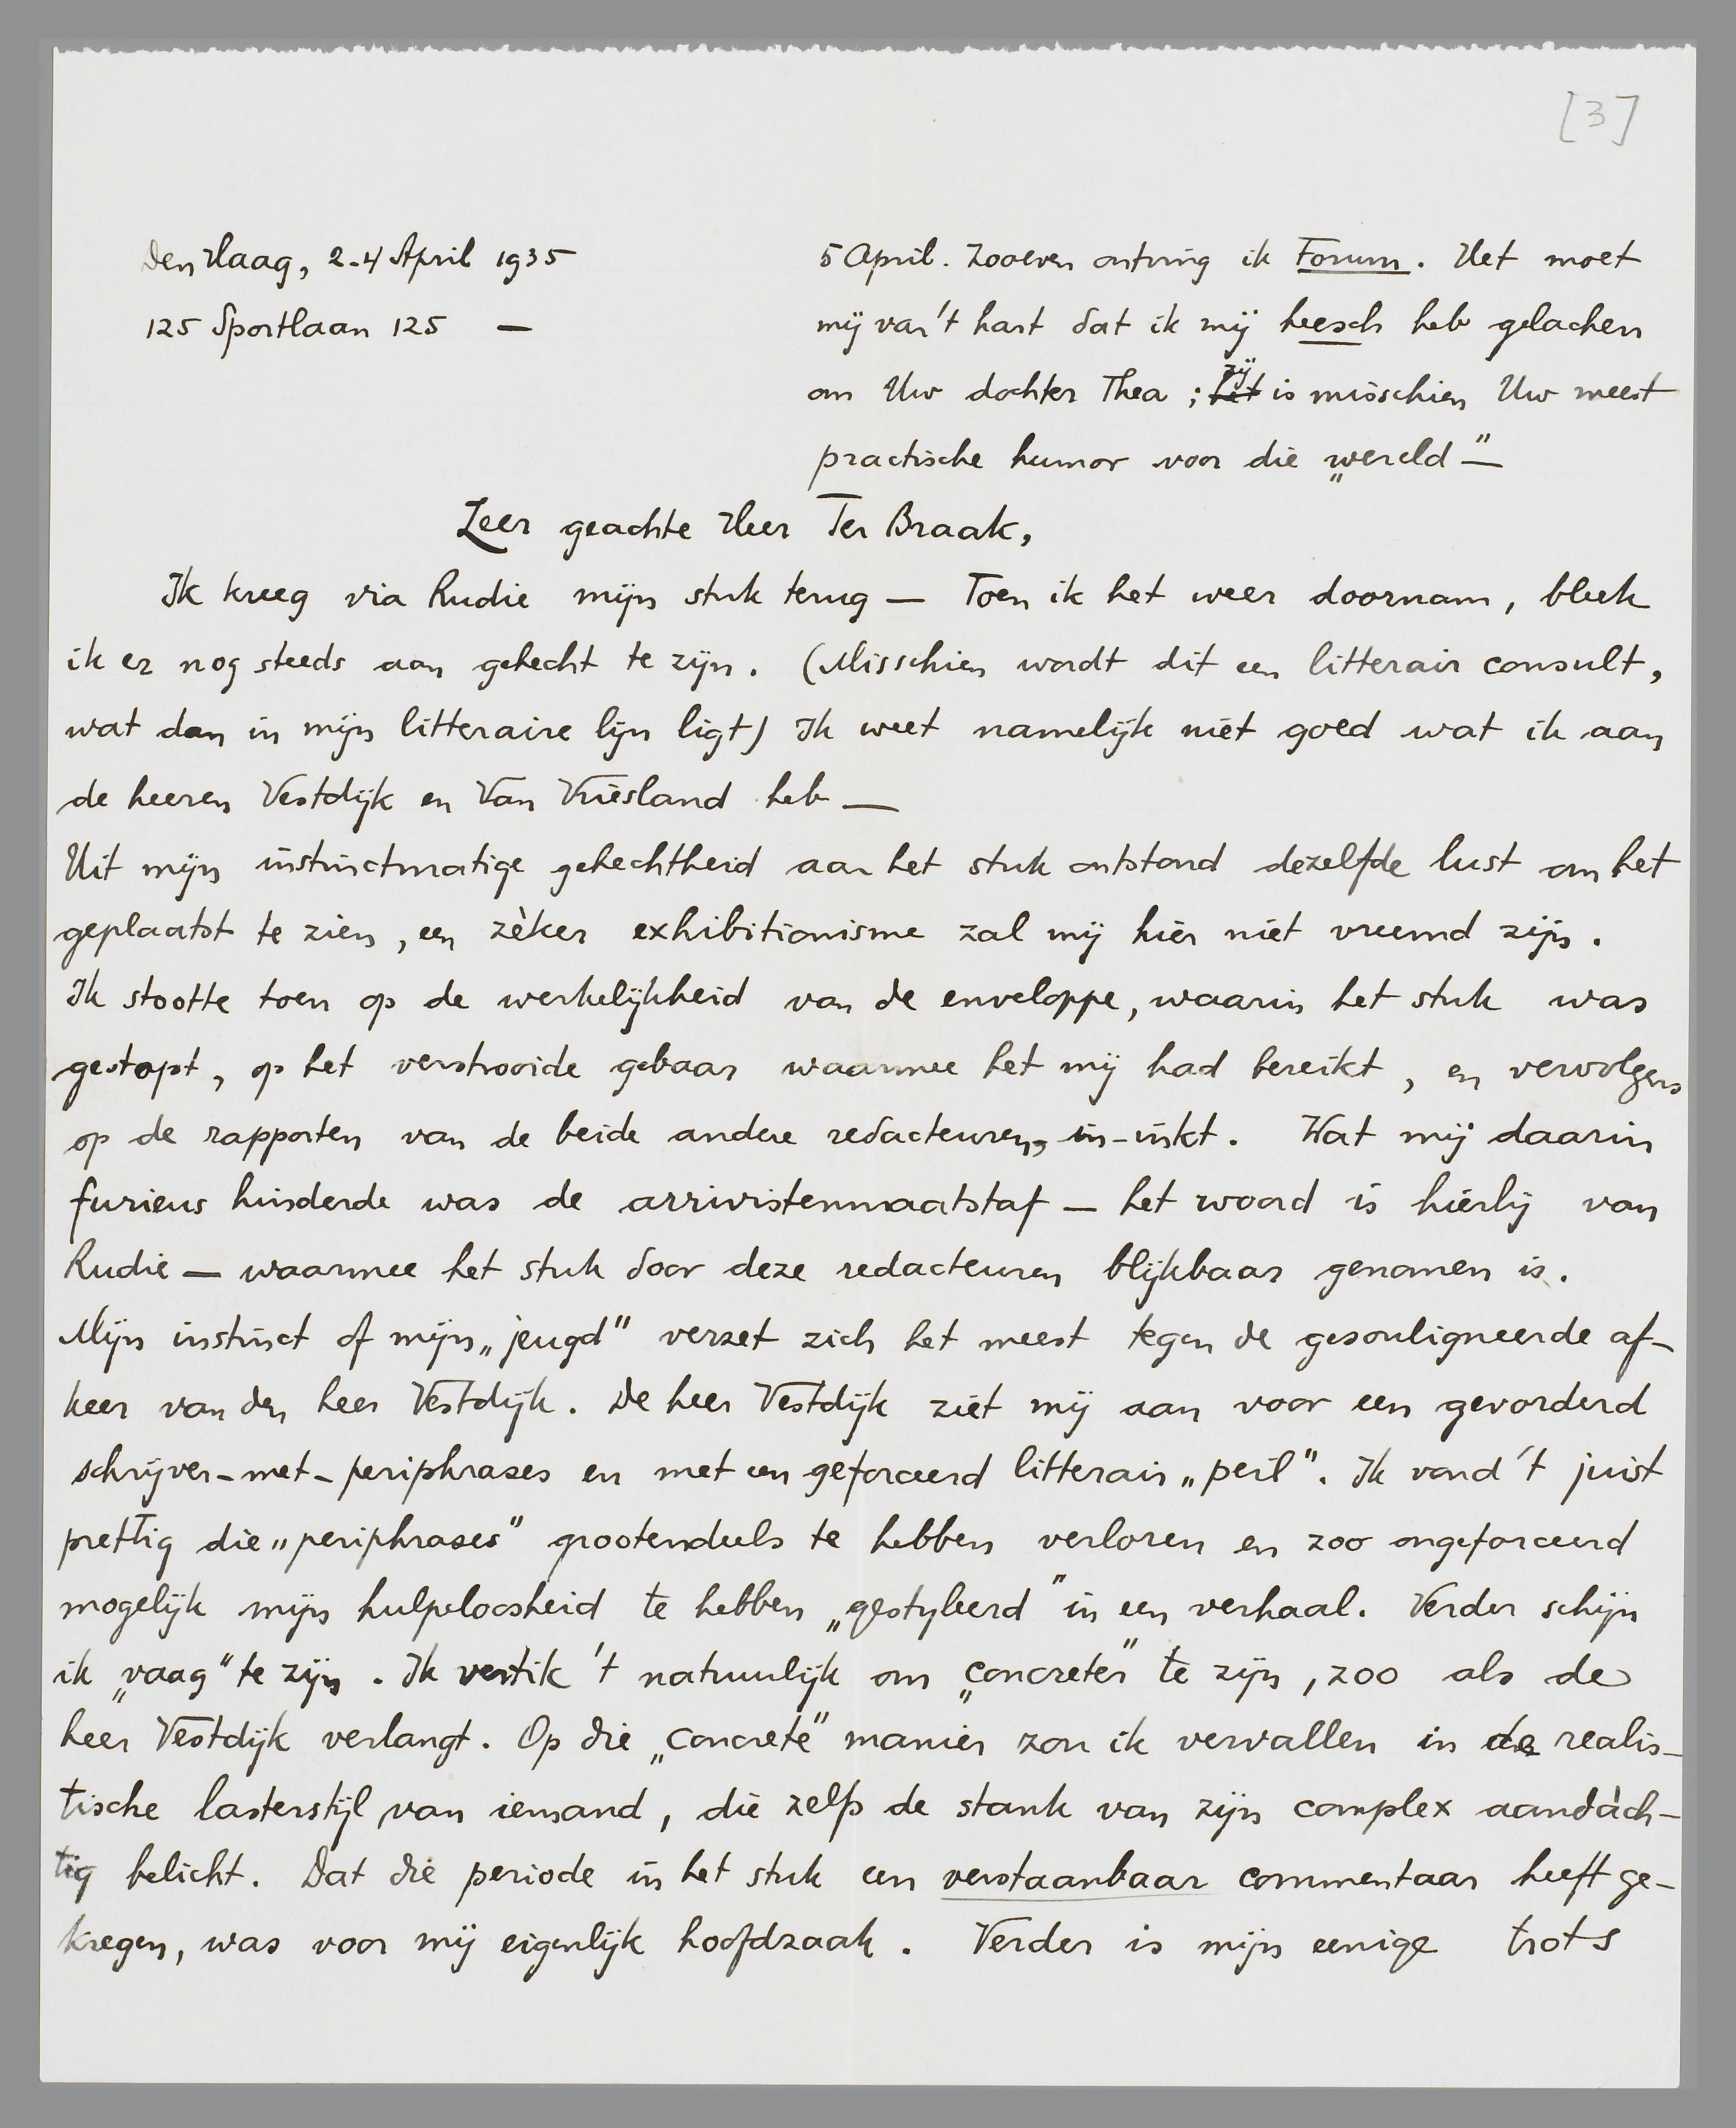 [3]
Den Haag, 2-4 April 1935
125 Sportlaan 125 —
5 April. Zooeven ontving ik Forum. Het moet
mij van 't hart dat ik mij heesch heb gelachen
om Uw dochter Thea ; het zij is misschien Uw meest
practische humor voor die „wereld" —
Zeer geachte Heer Ter Braak,
Ik kreeg via Rudie mijn stuk terug — Toen ik het weer doornam, bleek
ik er nog steeds aan gehecht te zijn. (Misschien wordt dit een litterair consult,
wat dan in mijn litteraire lijn ligt) Ik weet namelijk niet goed wat ik aan
de heeren Vestdijk en Van Vriesland heb —
Uit mijn instinctmatige gehechtheid aan het stuk ontstond dezelfde lust om het
geplaatst te zien, een zèker exhibitionisme zal mij hier niet vreemd zijn.
Ik stootte toen op de werkelijkheid van de enveloppe, waarin het stuk was
gestopt, op het verstrooide gebaar waarmee het mij had bereikt, en vervolgens
op de rapporten van de beide andere redacteuren, in-inkt. Wat mij daarin
furieus hinderde was de arrivistenmaatstaf — het woord is hierbij van
Rudie — waarmee het stuk door deze redacteuren blijkbaar genomen is.
Mijn instinct of mijn „jeugd" verzet zich het meest tegen de gesouligneerde af-
keer van den heer Vestdijk. De heer Vestdijk ziet mij aan voor een gevorderd
schrijver-met-periphrases en met een geforceerd litterair „peil". Ik vond 't juist
prettig die „periphrases" grootendeels te hebben verloren en zoo ongeforceerd
mogelijk mijn hulpeloosheid te hebben „gestyleerd" in een verhaal. Verder schijn
ik „vaag" te zijn. Ik vertik 't natuurlijk om „concreter" te zijn, zoo als de
heer Vestdijk verlangt. Op die „concrete" manier zou ik vervallen in de realis-
tische lasterstijl van iemand, die zelfs de stank van zijn complex aandàch-
tig belicht. Dat die periode in het stuk een verstaanbaar commentaar heeft ge-
kregen, was voor mij eigenlijk hoofdzaak. Verder is mijn eenige trots